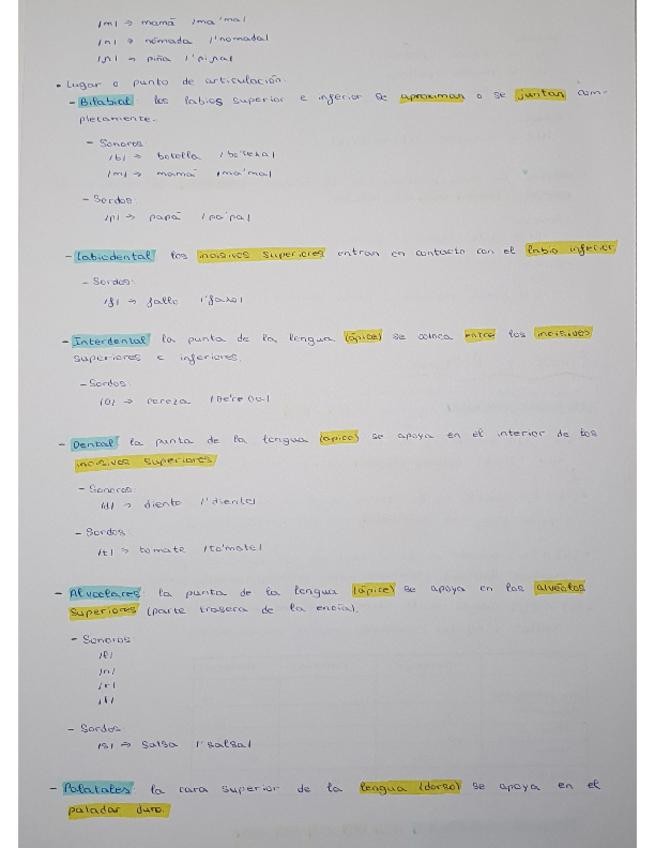 /m/ → mamá /ma'ma/
/n/ → nómada /'nomada/
/ɲ/ → piña /'piɲa/
• Lugar o punto de articulación.
- Bilabial: los labios superior e inferior se aproximan o se juntan com-
pletamente.
- Sonoros:
/b/ → botella
/m/ → mamá /ma'ma/
- Sordos:
/p/ → papá /pa'pa/
- Labiodental los incisivos superiores entran en contacto con el labio inferior
- Sordos:
/f/ → fallo
- Interdental la punta de la lengua (ápice) se coloca entre los incisivos
superiores e inferiores.
- Sordos:
/θ/ → cereza
- Dental la punta de la lengua (ápice) se apoya en el interior de los
incisivos superiores
- Sonoros:
/d/ → diente /'diente/
- Sordos:
/t/ → tomate /to'mate/
- Alveolares: la punta de la lengua (ápice) se apoya en los alvéolos
superiores (parte trasera de la encía).
- Sonoros
/n/
/r/
- Sordos
/s/ → salsa /'salsa/
- Palatales: la cara superior de la lengua (dorso) se apoya en el
paladar duro.